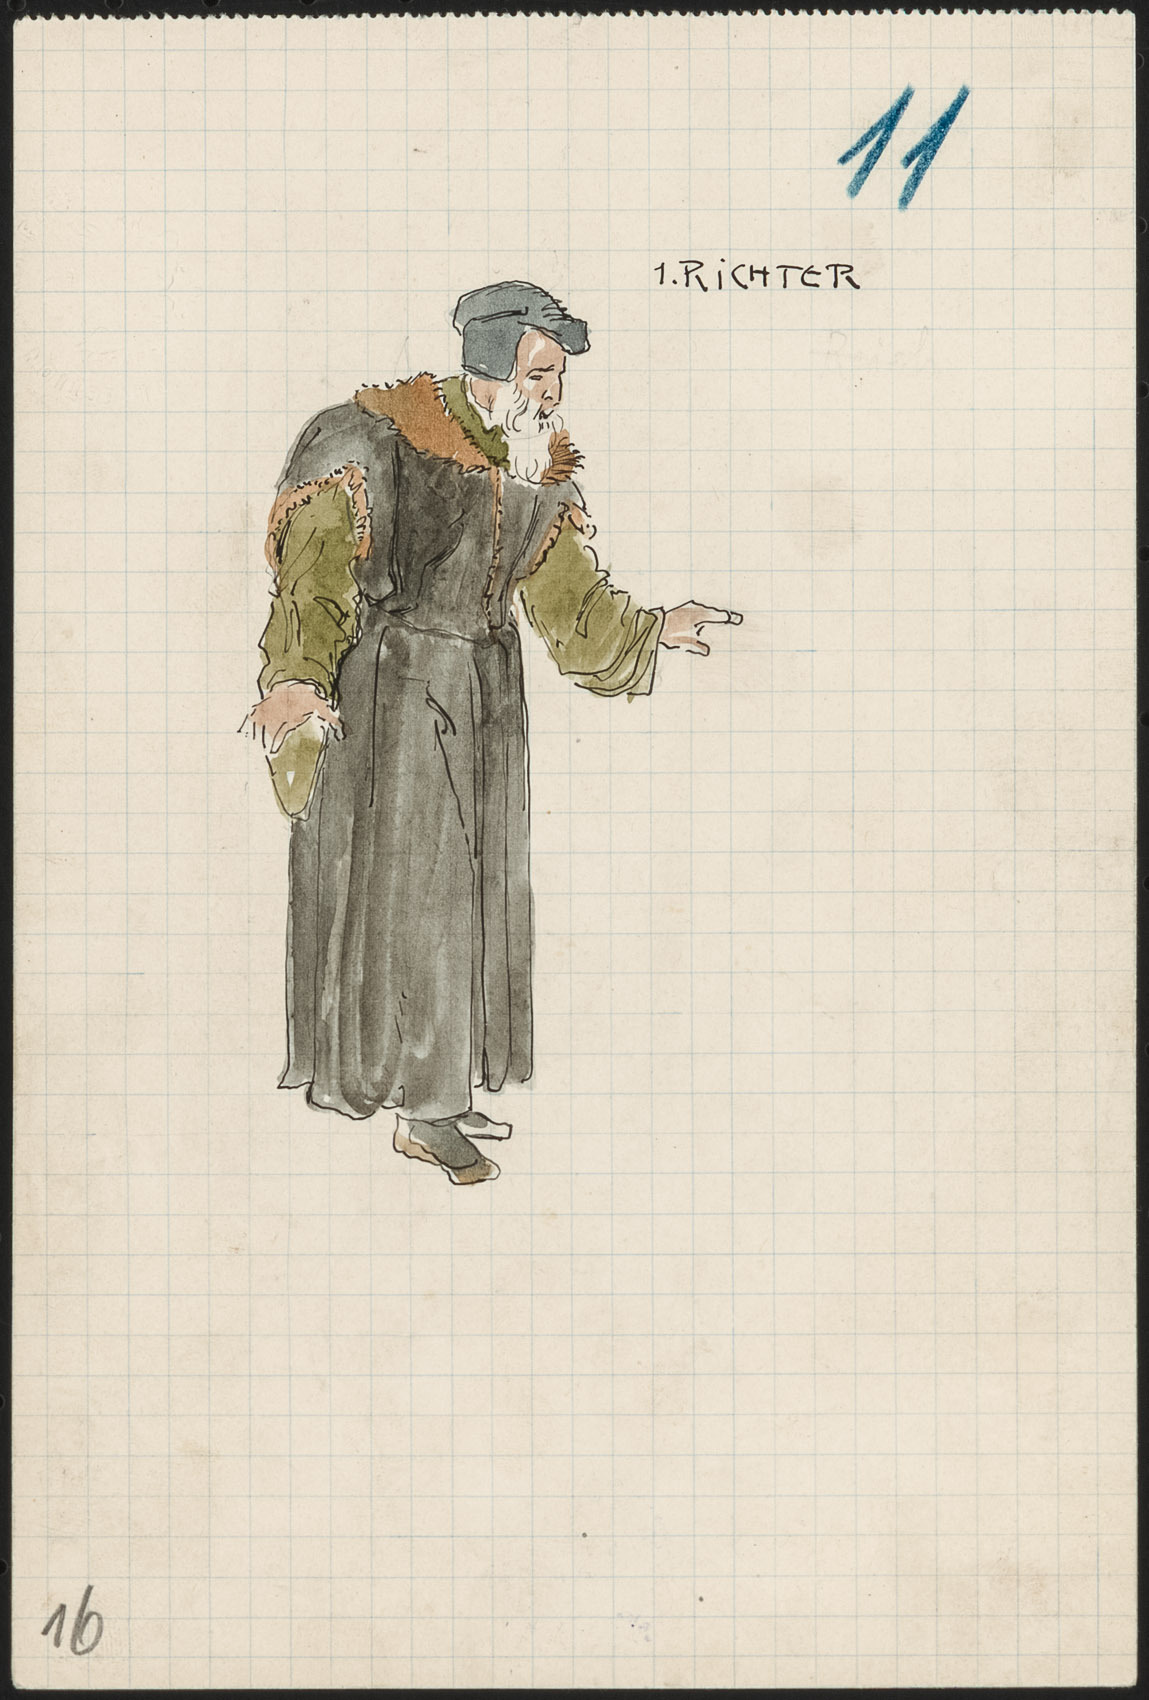 11
1. RiCHTER
16